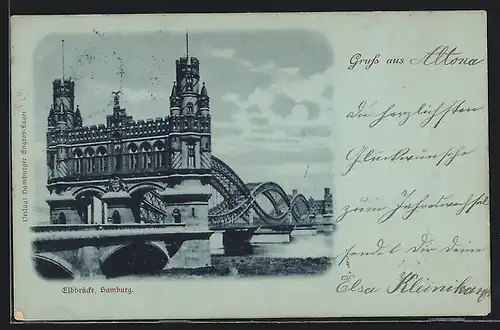 Gruß aus Altona
die herzlichsten
Glückwünsche
zum Jahreswechsel
sendet Dir deine
Elsa
Verlag: Hamburger Engros-Lager
Elbbrücke, Hamburg.